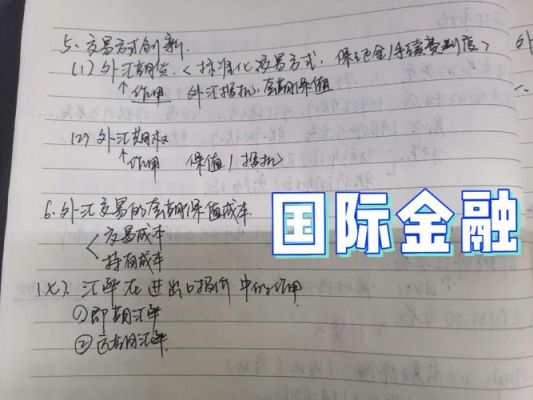 5. 交易方式创新.
(1) 外汇期货. <标准化交易方式. 保证金/手续费制度>
↑作用 外汇投机. 套期保值
(2) 外汇期权
↑作用 保值/投机>
6. 外汇交易的套期保值成本.
国际金融
<交易成本
持有成本
(七). 汇率在进出口报价中的作用
①即期汇率
②远期汇率